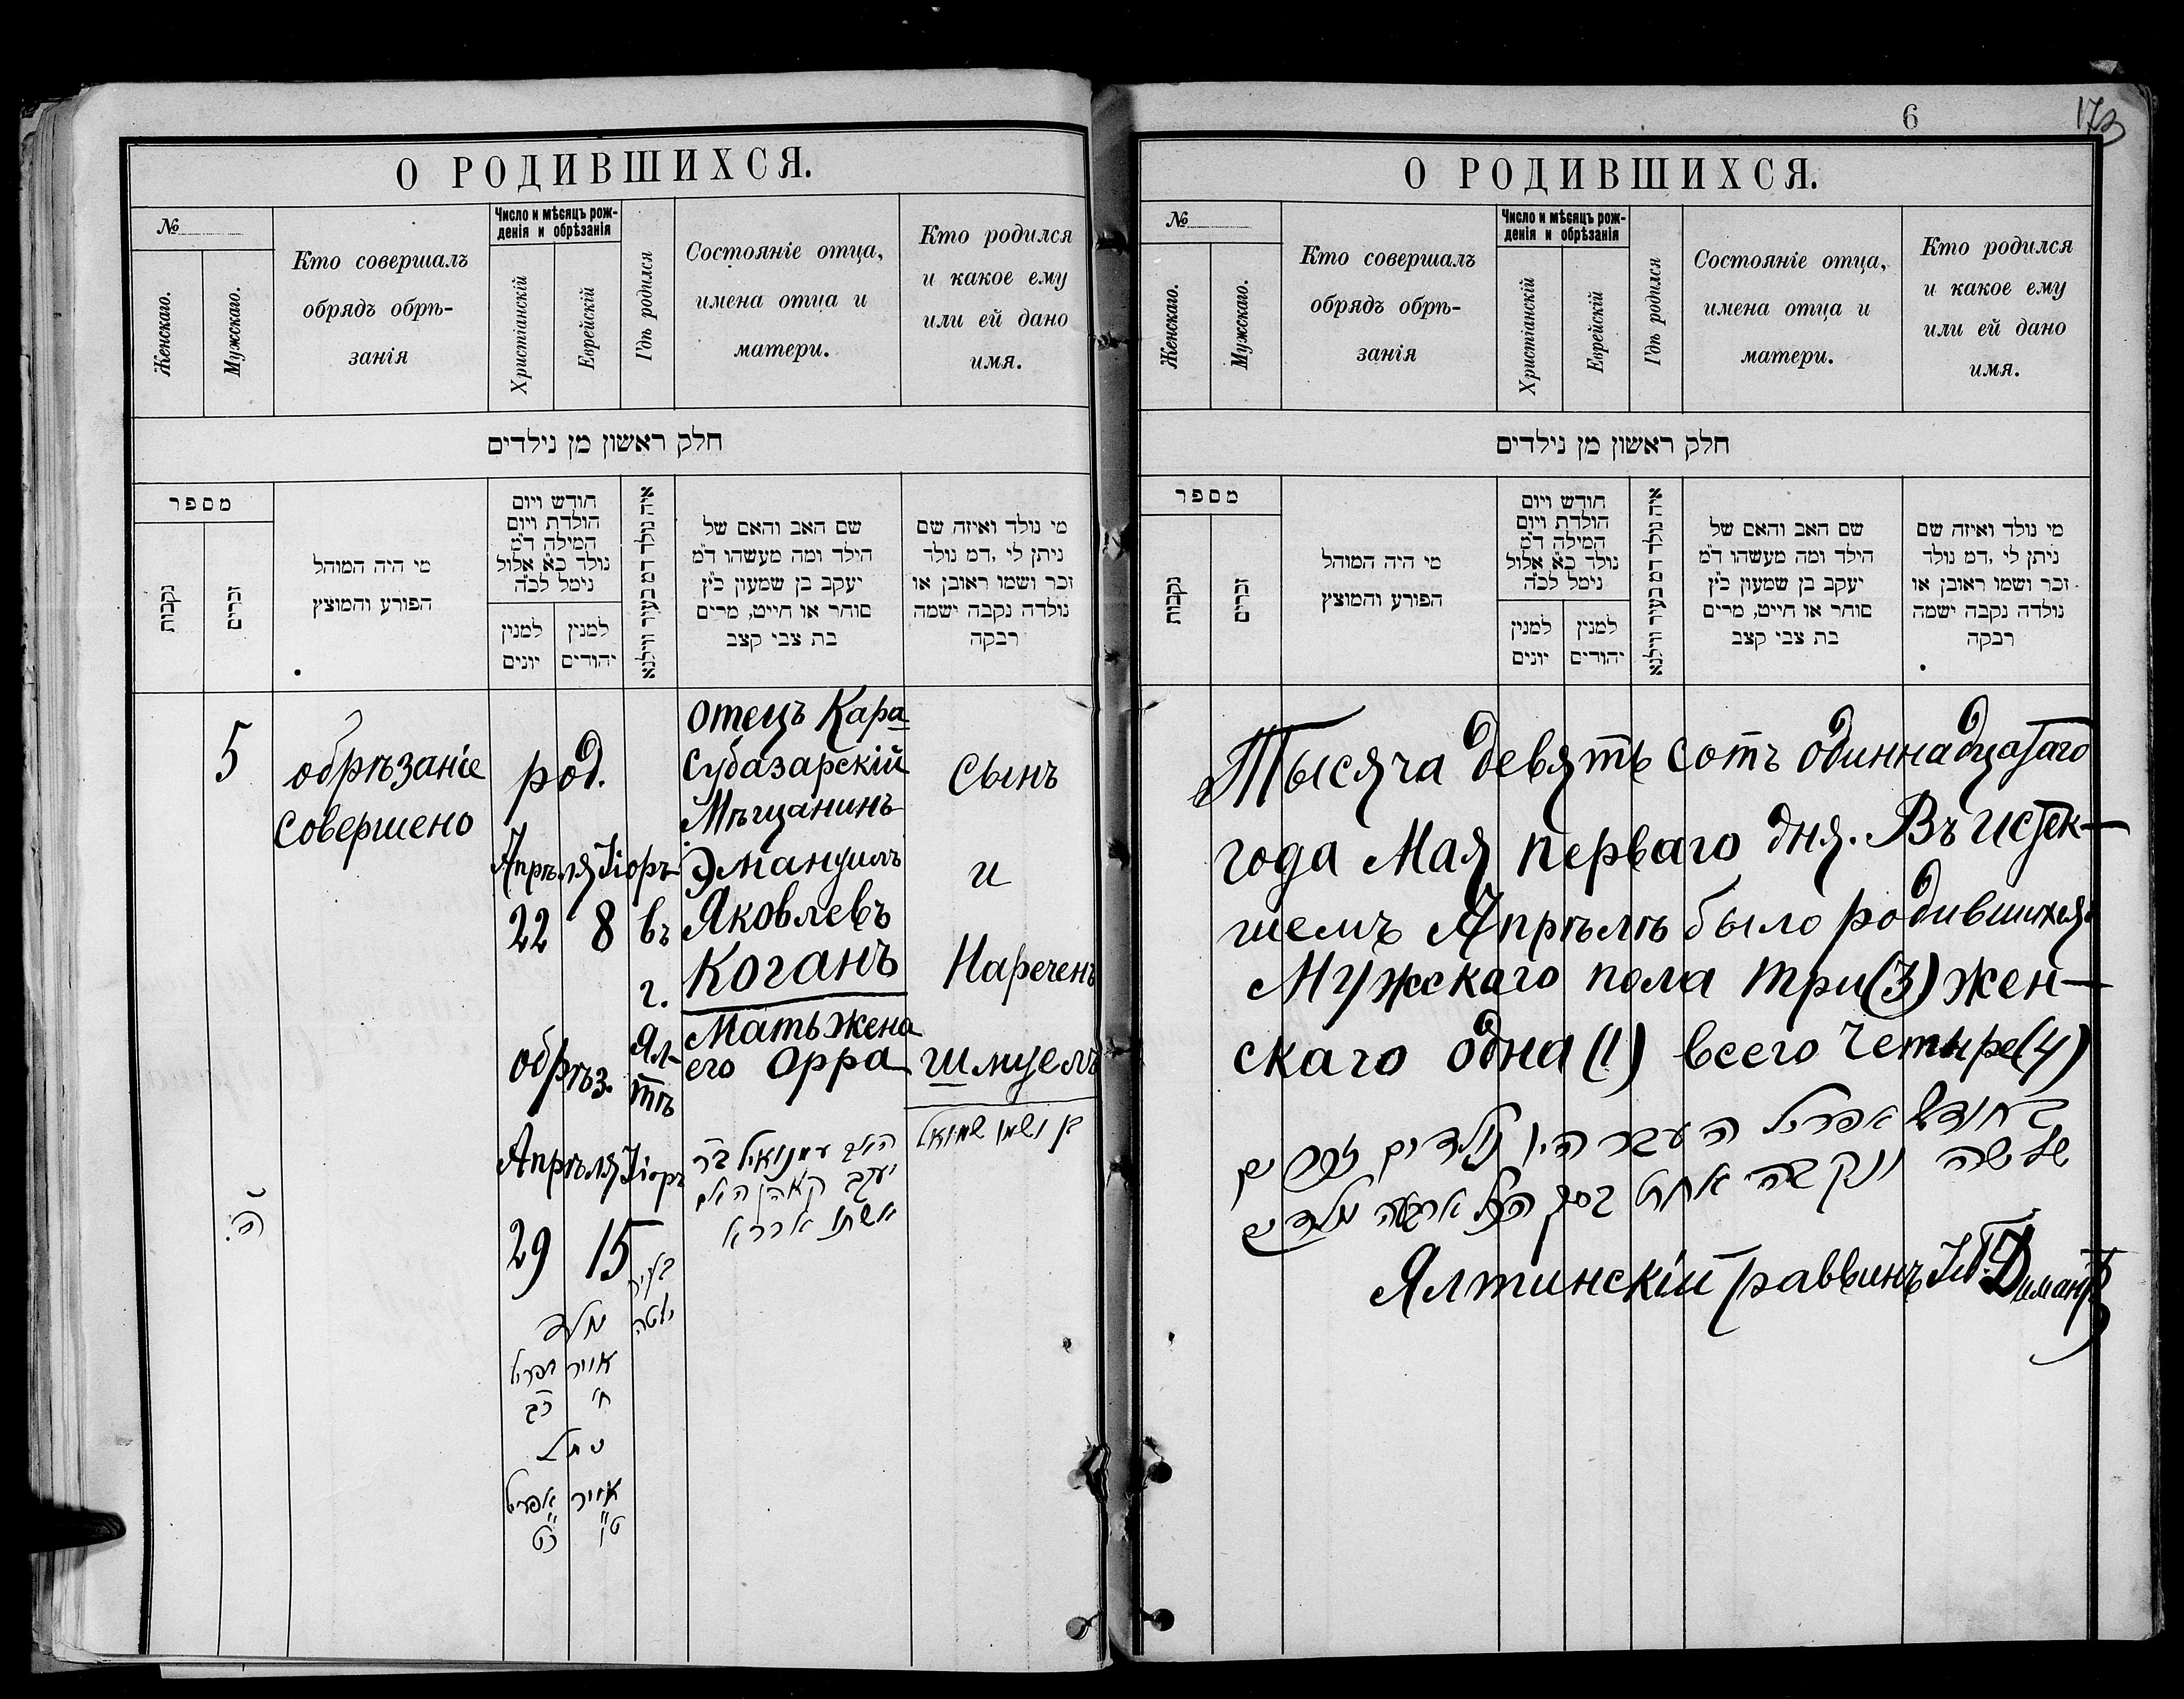 О РОДИВШИХСЯ.
№
Женскаго.
Мужскаго.
Кто совершалъ
обрядъ обрѣ-
занія
Число и мѣсяцъ рож-
денія и обрѣзанія
Христіанскій
Еврейскій
Гдѣ родился
Состояніе отца,
имена отца и
матери.
Кто родился
и какое ему
или ей дано
имя.
חלק ראשון מן נילדים
מספר
נקבות
זכרים
מי היה המוהל
הפורע והמוצץ
חודש ויום
הולדת ויום
המילה ד״מ
נולד כ״א אלול
נימל לכ״ה
למנין
יונים
למנין
יהודים
איה נולד דמ בעיר ווילנא
שם האב והאם של
הילד ומה מעשהו ד״מ
יעקב בן שמעון כ״ץ
סוחר או חייט, מרים
בת צבי קצב
מי נולד ואיזה שם
ניתן לי ,דמ נולד
זכר ושמו ראובן או
נולדה נקבה ישמה
רבקה
5
обрѣзаніе
совершено
род.
Апрѣля Іюръ
22 8
обрѣз.
Апрѣля Іюръ
29 15
въ
г.
Ял-
тѣ
отецъ Кара
субазарскій
Мѣщанинъ
Эмануилъ
Яковлевъ
Коганъ
Мать жена
его Орра
сынъ
и
Нареченъ
Шмуелъ
ה׳
נולד
אייר אפריל
ח׳ כב
נמל
אייר אפריל
ט״ו כ״ט
בעיר
יאלטה
האב עמנואיל בר
יעקב קאהן האם
אשתו אררא
בן ושמו שמואל
6
О РОДИВШИХСЯ.
№
Женскаго.
Мужскаго.
Кто совершалъ
обрядъ обрѣ-
занія
Число и мѣсяцъ рож-
денія и обрѣзанія
Христіанскій
Еврейскій
Гдѣ родился
Состояніе отца,
имена отца и
матери.
Кто родился
и какое ему
или ей дано
имя.
חלק ראשון מן נילדים
מספר
נקבות
זכרים
מי היה המוהל
הפורע והמוצץ
חודש ויום
הולדת ויום
המילה ד״מ
נולד כ״א אלול
נימל לכ״ה
למנין
יונים
למנין
יהודים
איה נולד דמ בעיר ווילנא
שם האב והאם של
הילד ומה מעשהו ד״מ
יעקב בן שמעון כ״ץ
סוחר או חייט, מרים
בת צבי קצב
מי נולד ואיזה שם
ניתן לי ,דמ נולד
זכר ושמו ראובן או
נולדה נקבה ישמה
רבקה
Тысяча девять сотъ одиннадцатаго
года Мая перваго дня. Въ истек-
шемъ Апрѣлѣ было родившихся
Мужскаго пола три (3) жен-
скаго одна (1) всего четыре (4)
בחודש אפריל העבר היו נולדים זכרים
שלשה ונקבה אחת בסך הכל ארבעה נולדים
Ялтинскій раввинъ